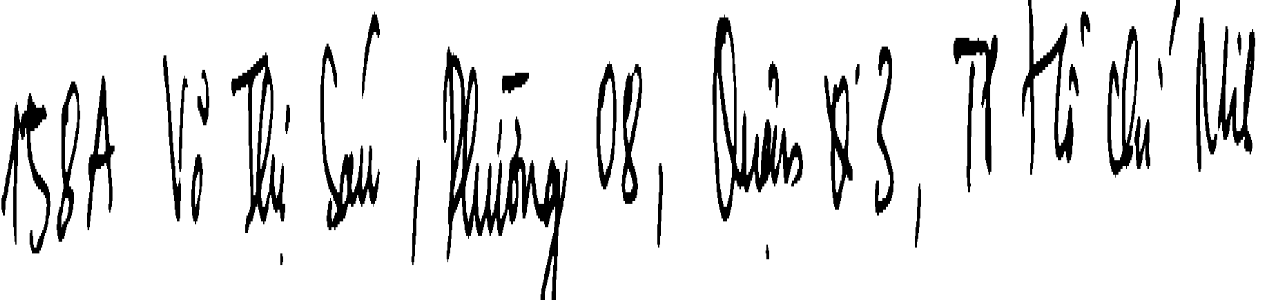 158A Võ Thị Sáu, Phường 08, Quận 3, TP Hồ Chí Minh